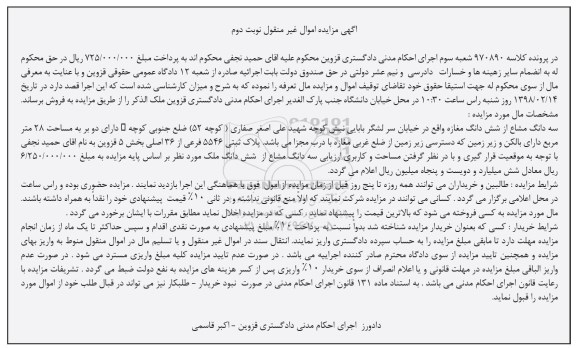 آگهی مزایده اموال غیر منقول نوبت دوم
در پرونده کلاسه ۹۷۰۸۹۰ شعبه سوم اجرای احکام مدنی دادگستری قزوین محکوم علیه آقای حمید نجفی محکوم اند به پرداخت مبلغ ۷۲۵/۰۰۰/۰۰۰ ریال در حق محکوم
له به انضمام سایر هزینه ها و خسارات دادرسی و نیم عشر دولتی در حق صندوق دولت بابت اجرائیه صادره از شعبه ۱۲ دادگاه عمومی حقوقی قزوین و با عنایت به معرفی
مال از سوی محکوم له جهت استیفا حقوق خود تقاضای توقیف اموال و مزایده مال تعرفه را نموده که به شرح و میزان کارشناسی شده است که این اجرا قصد دارد در تاریخ
۱۳۹۸/۰۲/۱۴ روز شنبه راس ساعت ۱۰:۳۰ در محل خیابان دانشگاه جنب پارک الغدیر اجرای احکام مدنی دادگستری قزوین ملک الذکر را از طریق مزایده به فروش برساند.
مشخصات مال مورد مزایده :
سه دانگ مشاع از شش دانگ مغازه واقع در خیابان سر لشگر بابایی نبش کوچه شهید علی اصغر صفاری ( کوچه ۵۲) ضلع جنوبی کوچه دارای دو بر به مساحت ۲۸ متر
مربع دارای بالکن و زیر زمین که دسترسی زیر زمین از ضلع غربی مغازه با درب مجزا می باشد. پلاک ثبتی ۵۵۴۶ فرعی از ۳۶ اصلی بخش ۵ قزوین به نام آقای حمید نجفی
با توجه به موقعیت قرار گیری و با در نظر گرفتن مساحت و کاربری ارزیابی سه دانگ مشاع از شش دانگ ملک مورد نظر بر اساس پایه مزایده به مبلغ ۶/۲۵۰/۰۰۰/۰۰۰
ریال معادل شش میلیارد و دویست و پنجاه میلیون ریال اعلام می گردد.
شرایط مزایده : طالبین و خریداران می توانند همه روزه تا پنج روز قبل از زمان مزایده از اموال فوق با هماهنگی این اجرا بازدید نمایند . مزایده حضوری بوده و راس ساعت
در محل اعلامی برگزار می گردد . کسانی می توانند در مزایده شرکت نمایند که اولا منع قانونی نداشته و در ثانی ۱۰٪ قیمت پیشنهادی خود را نقداً به همراه داشته باشند.
مال مورد مزایده به کسی فروخته می شود که بالاترین قیمت را پیشنهاد نماید . کسی که در مزایده اخلال نماید مطابق مقررات با ایشان برخورد می گردد .
شرایط خریدار : کسی که بعنوان خریدار مزایده شناخته شد بدوا نسبت به پرداخت ۱۰٪ مبلغ پیشنهادی به صورت نقدی اقدام و سپس حداکثر تا یک ماه از زمان انجام
مزایده مهلت دارد تا مابقی مبلغ مزایده را به حساب سپرده دادگستری واریز نمایند. انتقال سند در اموال غیر منقول و یا تسلیم مال در اموال منقول منوط به واریز بهای
مزایده و همچنین تایید مزایده از سوی دادگاه محترم صادر کننده اجراییه می باشد . در صورت عدم تایید مزایده کلیه مبلغ واریزی مسترد می شود . در صورت عدم
واریز الباقی مبلغ مزایده در مهلت قانونی و یا اعلام انصراف از سوی خریدار ۱۰٪ واریزی پس از کسر هزینه های مزایده به نفع دولت ضبط می گردد . تشریفات مزایده با
رعایت قانون اجرای احکام مدنی می باشد . به استناد ماده ۱۳۱ قانون اجرای احکام مدنی در صورت نبود خریدار - طلبکار نیز می تواند در قبال طلب خود از اموال مورد
مزایده را قبول نماید.
دادورز اجرای احکام مدنی دادگستری قزوین - اکبر قاسمی